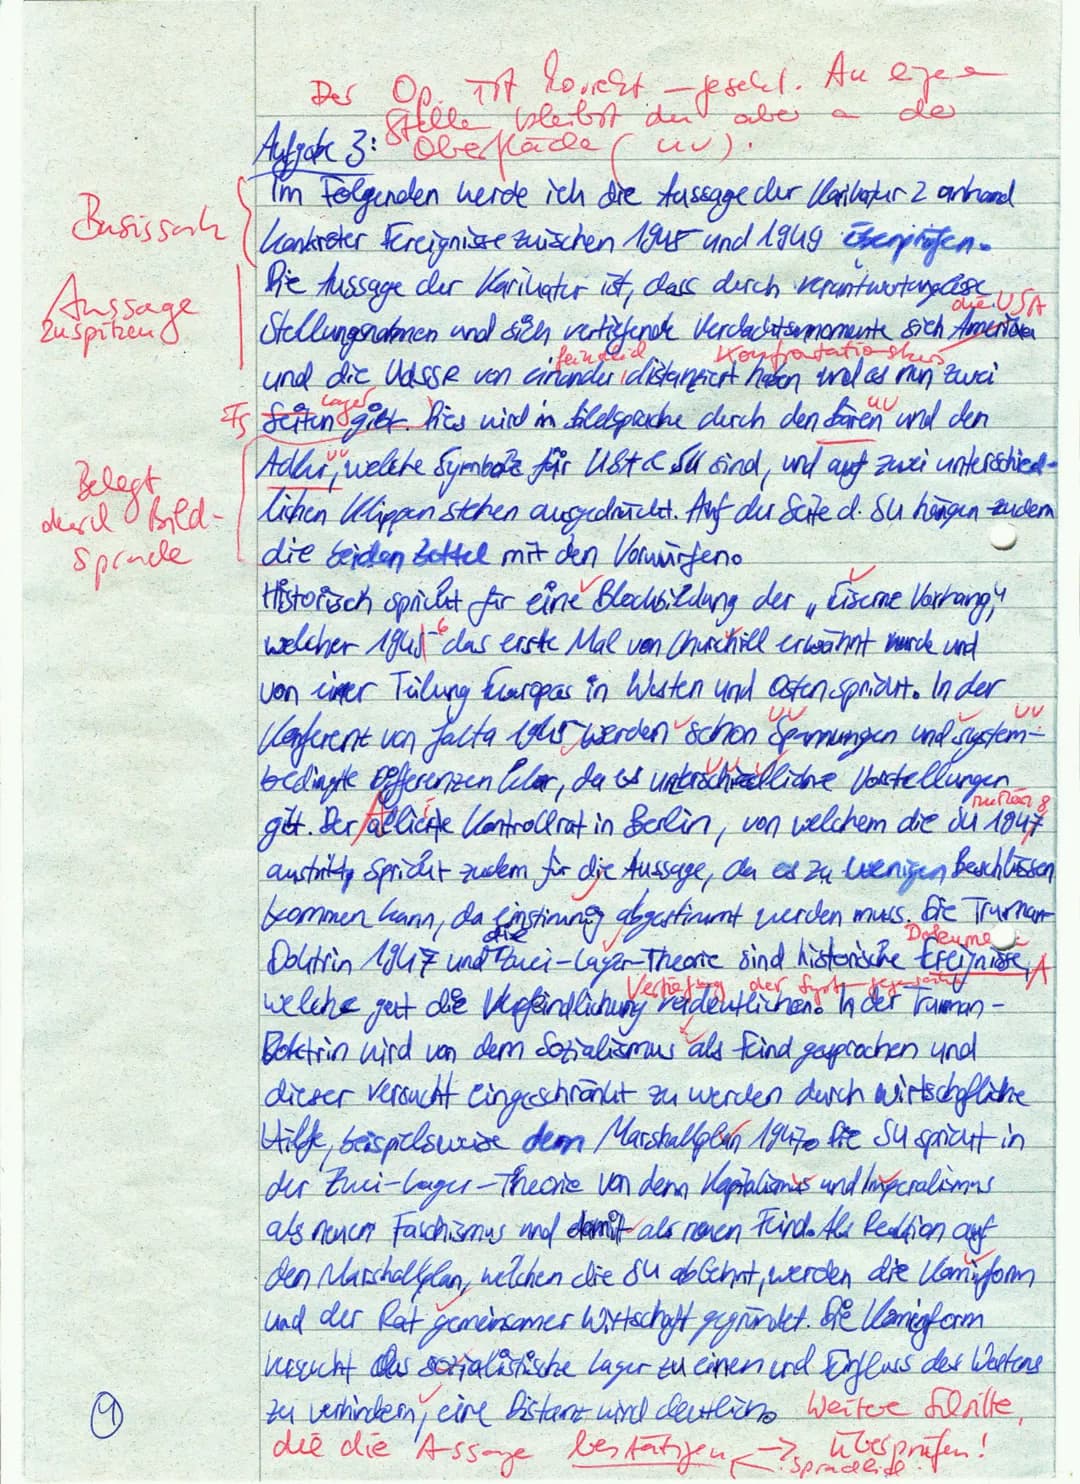 Der Op. ist korrekt umgesetzt. An einigen
Stelle bleibst du aber an der
Oberfläche (uv).
Aufgabe 3:
Im Folgenden werde ich die Aussage der Karikatur 2 anhand
Basissatz
konkreter Ereignisse zwischen 1945 und 1949 überprüfen.
Die Aussage der Karikatur ist, dass durch verantwortungslose
Aussage
zuspitzen
die USA
Stellungsnahmen und sich vertiefende Verdachtsmomente sich Amerika
feindlich Konfrontationskurs
und die UdSSR von einander distanziert haben und es nun zwei
Lager
Seiten gibt. Dies wird in Bildsprache durch den Bären uv und den
Adler, uv welche Symbole für USA & SU sind, und auf zwei unterschied-
Belegt
durch Bild-
sprache
lichen Klippen stehen ausgedrückt. Auf der Seite d. SU hängen zudem
die beiden Zettel mit den Vorwürfen.
Historisch spricht für eine Blockbildung der „Eiserne Vorhang“,
welcher 1945 6 das erste Mal von Churchill erwähnt wurde und
von einer Teilung Europas in Westen und Osten spricht. In der
Konferenz von Jalta 1945 werden schon Spannungen und system-
bedingte Differenzen klar, da es unterschiedliche Vorstellungen
gibt. Der alliierte Kontrollrat in Berlin, von welchem die SU 1947
8
austritt, spricht zudem für die Aussage, da es zu wenigen Beschlüssen
kommen kann, da einstimmig abgestimmt werden muss. Die Truman-
die
Doktrin 1947 und Zwei-Lager-Theorie sind historische Ereignisse, A
Vertiefung der
welche gut die Verfeindlichung verdeutlichen. In der Truman-
Doktrin wird von dem Sozialismus als Feind gesprochen und
dieser versucht eingeschränkt zu werden durch wirtschafliche
Hilfe, beispielsweise dem Marshallplan 1947. Die SU spricht in
der Zwei-Lager-Theorie von dem Kapitalismus und Imperalismus
als neuen Faschismus und damit als neuen Feind. Als Reaktion auf
den Marschallplan, welchen die SU ablehnt, werden die Kominform
und der Rat gemeinsamer Wirtschaft gegründet. Die Kominform
versucht das sozialistische Lager zu einen und Einfluss des Westens
zu verhindern, eine Distanz wird deutlich. Weitere Schritte,
die die Assage bestätigen → überprüfen!
sprachlich